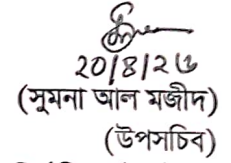 ২০/৪/২৬
(সুমনা আল মজীদ)
(উপসচিব)